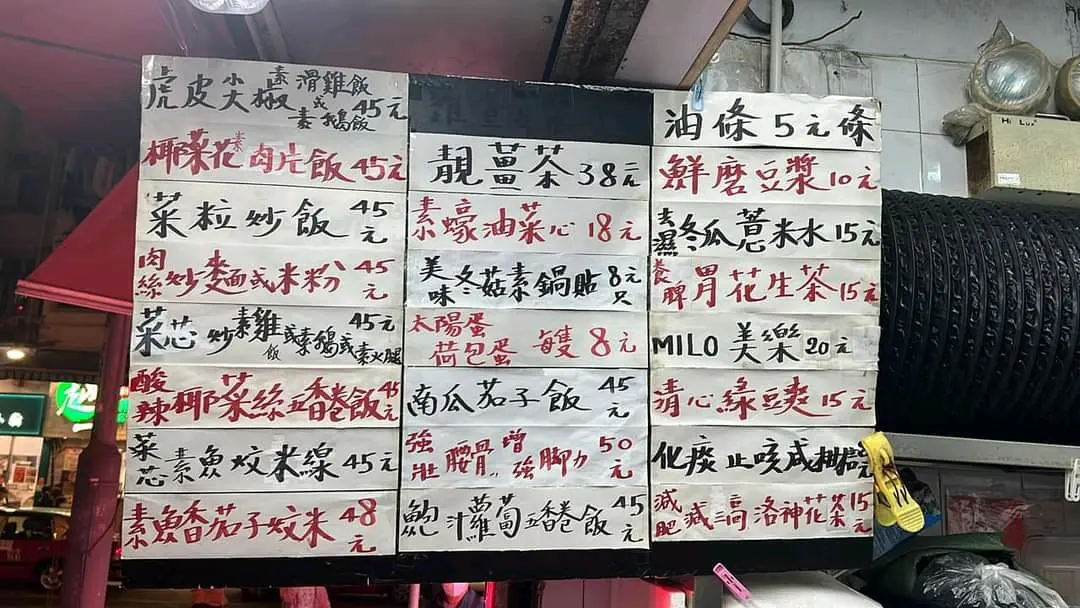 虎皮尖椒素滑雞飯或素鵝飯45元
椰菜花素肉片飯45元
菜粒炒飯45元
肉絲炒麵或米粉45元
菜芯炒素雞飯或素鵝或素火腿45元
酸辣椰菜絲五香卷飯45元
菜芯素魚炆米線45元
素魚香茄子炆米48元
靚薑茶38元
素蠔油菜心18元
美味冬菇素鍋貼8元只
太陽蛋荷包蛋每隻8元
南瓜茄子飯45元
強壯腰骨增強腳力50元
鮑汁蘿蔔五香卷飯45元
油條5元條
鮮磨豆漿10元
冬瓜薏米水15元
養脾胃花生茶15元
MILO美樂20元
清心綠豆爽15元
化痰止咳咸柑桔
減肥減三高洛神花茶15元
Hi Lux